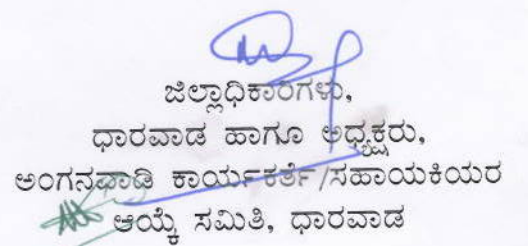 ಜಿಲ್ಲಾಧಿಕಾರಿಗಳು,
ಧಾರವಾಡ ಹಾಗೂ ಅಧ್ಯಕ್ಷರು,
ಅಂಗನವಾಡಿ ಕಾರ್ಯಕರ್ತೆ/ಸಹಾಯಕಿಯರ
ಆಯ್ಕೆ ಸಮಿತಿ, ಧಾರವಾಡ